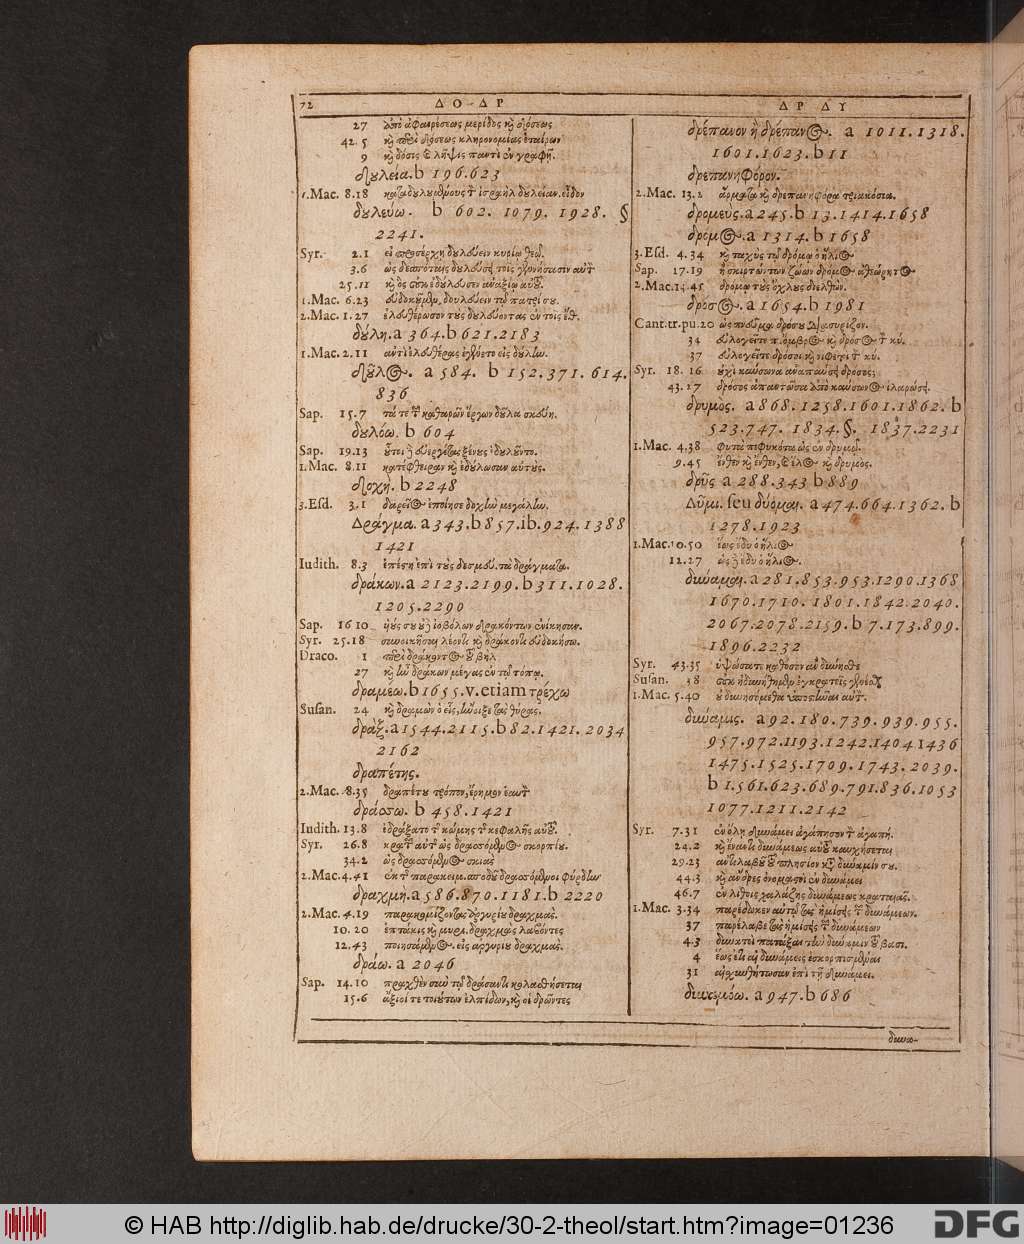 72
ΔΟ-ΔΡ
27 ἀπὸ ἀφαιρέσεως μερίδος καὶ δόσεως
42.5 καὶ περὶ δόσεως κληρονομίας ἑταίρων
9 καὶ δόσις καὶ λῆψις παντὶ ἐν γραφῇ.
δουλεία. b 196.623
1.Mac. 8.18 καταδουλουμένους τὸν ἰσραὴλ δουλείαν. εἶδον
δουλεύω. b 602. 1079. 1928. §
2241.
Syr. 2.1 εἰ προσέρχῃ δουλεύειν κυρίῳ θεῷ.
3.6 ὡς δεσπόταις δουλεύσει τοῖς γεννήσασιν αὐτὸν
25.11 καὶ ὃς οὐκ ἐδούλευσεν ἀναξίῳ αὐτοῦ.
1.Mac. 6.23 εὐδοκοῦμεν, δουλεύειν τῷ πατρί σου.
2.Mac. 1.27 ἐλευθέρωσον τοὺς δουλεύοντας ἐν τοῖς ἔθ.
δούλη. a 364. b 621.2183
1.Mac. 2.11 ἀντὶ ἐλευθέρας ἐγένετο εἰς δούλην.
δοῦλος. a 584. b 152.371.614.
836
Sap. 15.7 τά τε τῶν καθαρῶν ἔργων δοῦλα σκεύη.
δουλόω. b 604
Sap. 19.13 οὗτοι δὲ εὐεργέτας ξένους ἐδουλοῦντο.
1.Mac. 8.11 κατέφθειραν καὶ ἐδούλωσαν αὐτούς.
δοχή. b 2248
3.Esd. 3.1 δαρεῖος ἐποίησε δοχὴν μεγάλην.
Δράγμα. a 343. b 857. ib. 924. 1388
1421
Iudith. 8.3 ἐπέστη ἐπὶ τοὺς δεσμεύ. τὰ δράγματα.
δράκων. a 2123.2199. b 311.1028.
1205.2290
Sap. 16 10 υἱούς σου οὐδὲ ἰοβόλων δρακόντων ἐνίκησαν.
Syr. 25.18 συνοικῆσαι λέοντι καὶ δράκοντι εὐδοκήσω.
Draco. 1 περὶ δράκοντος τοῦ βὴλ
27 καὶ ἦν δράκων μέγας ἐν τῷ τόπῳ.
δραμέω. b 1655. v. etiam τρέχω
Susan. 24 καὶ δραμὼν ὁ εἷς, ἤνοιξε τὰς θύρας.
δράξ. a 1544.2115. b 82.1421.2034
2162
δραπέτης.
2.Mac. 8.35 δραπέτου τρόπον, ἔρημον ἑαυτὸν
δράσσω. b 458.1421
Iudith. 13.8 ἐδράξατο τῆς κόμης τῆς κεφαλῆς αὐτοῦ.
Syr. 26.8 κρατῶν αὐτῆς ὡς δρασσόμενος σκορπίου.
34.2 ὡς δρασσόμενος σκιᾶς
2.Mac. 4.41 ἐκ τῆς παρακειμ. σποδοῦ δρασσόμενοι φύρδην
δραχμή. a 586.870.1181. b 2220
2.Mac. 4.19 παρακομίζοντας ἀργυρίου δραχμάς.
10.20 ἑπτάκις καὶ μυρι. δραχμὰς λαβόντες
12.43 ποιησάμενος. εἰς ἀργυρίου δραχμάς.
δράω. a 2046
Sap. 14.10 πραχθὲν σὺν τῷ δράσαντι κολασθήσεται
15.6 ἄξιοί τε τοιούτων ἐλπίδων, καὶ οἱ δρῶντες
ΔΡ ΔΥ
δρέπανον ἢ δρέπανος. a 1011.1318.
1601.1623. b 11
δρεπανηφόρον.
2.Mac. 13.2 ἅρματα καὶ δρεπανηφόρα τριακόσια.
δρομεύς. a 245. b 13.1414.1658
δρόμος. a 1314. b 1658
3.Esd. 4.34 καὶ ταχὺς τῷ δρόμῳ ὁ ἥλιος
Sap. 17.19 ἢ σκιρτώντων ζώων δρόμος ἀθεώρητος
2.Mac. 14.45 δρόμῳ τοὺς ὄχλους διελθών.
δρόσος. a 1654. b 1981
Cant. tr. pu. 20 ὡς πνεῦμα δρόσου διασυρίζον.
34 εὐλογεῖτε π. ὄμβρος καὶ δρόσος τὸν κύ.
37 εὐλογεῖτε δρόσοι καὶ νιφετοὶ τὸν κύ.
Syr. 18.16 οὐχὶ καύσωνα ἀναπαύσει δρόσος;
43.27 δρόσος ἀπαντῶσα ἀπὸ καύσωνος ἱλαρώσει.
δρυμός. a 868.1258.1601.1862. b
523.747. 1834. §. 1837.2231
1.Mac. 4.38 φυτὰ πεφυκότα ὡς ἐν δρυμῷ.
9.45 ἔνθεν καὶ ἔνθεν, καὶ ἕλος καὶ δρυμός.
δρῦς a 288.343 b 889
Δῦμι. seu δύομαι. a 474.664.1362. b
1278.1923
1.Mac. 10.50 ἕως ἔδυ ὁ ἥλιος.
12.27 ὡς δὲ ἔδυ ὁ ἥλιος.
δύναμαι. a 281.853.953.1290.1368
1670.1710. 1801.1842.2040.
2067.2078.2159. b 7.173.899.
1896.2232
Syr. 43.35 ὑψώσατε καθόσον ἂν δύνησθε
Susan. 38 οὐκ ἠδυνήθημεν ἐγκρατεῖς γενέσθαι
1.Mac. 5.40 οὐ δυνησόμεθα ὑποστῆναι αὐτόν.
δύναμις. a 92.180.739.939.955.
957.972.1193.1242.1404 1436
1475.1525.1709.1743.2039.
b 1.561.623.689.791.836.1053
1077.1211.2142
Syr. 7.31 ἐν ὅλῃ δυνάμει ἀγάπησον τὸν ἀγαπή.
24.2 καὶ ἔναντι δυνάμεως αὐτοῦ καυχήσεται
29.23 ἀντιλαβοῦ τοῦ πλησίον κατὰ δύναμίν σου.
44.3 καὶ ἄνδρες ὀνομαστοὶ ἐν δυνάμει
46.7 ἐν λίθοις χαλάζης δυνάμεως κραταιᾶς.
1.Mac. 3.34 παρέδωκεν αὐτῷ τὰς ἡμίσεις τῶν δυνάμεων.
37 παρέλαβε τὰς ἡμίσεις τῶν δυνάμεων
4.3 δυνατοὶ πατάξαι τὴν δύναμιν τοῦ βασι.
4 ἕως ἔτι αἱ δυνάμεις ἐσκορπισμέναι
31 αἰσχυνθήτωσαν ἐπὶ τῇ δυνάμει.
δυναμόω. a 947. b 686
δυνα-
© HAB http://diglib.hab.de/drucke/30-2-theol/start.htm?image=01236
DFG